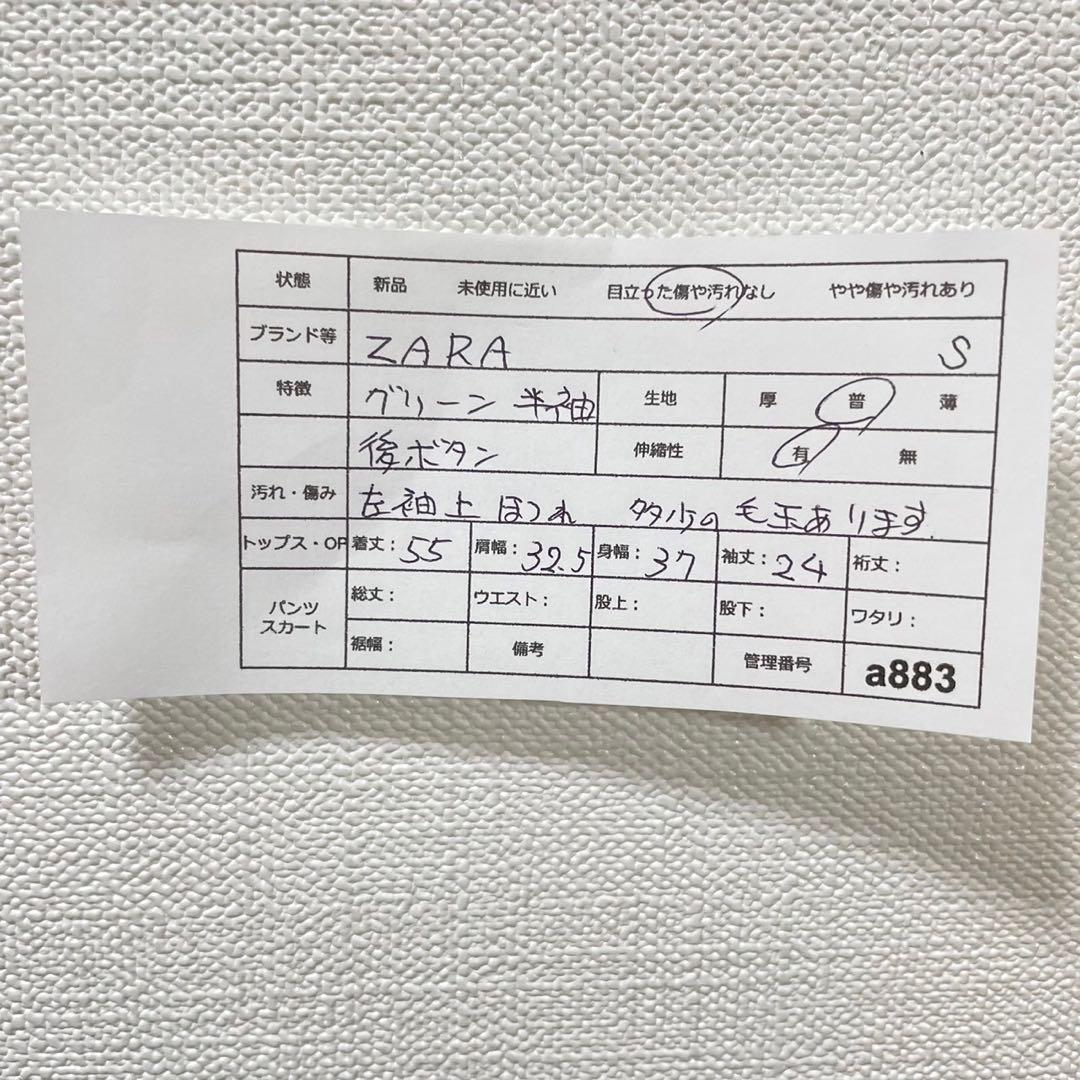 状態 新品 未使用に近い 目立った傷や汚れなし やや傷や汚れあり
ブランド等 ZARA S
特徴 グリーン 半袖 生地 厚 普 薄
後ボタン 伸縮性 有 無
汚れ・傷み 左袖上 ほつれ 多少の 毛玉あります.
トップス・OP 着丈: 55 肩幅: 32.5 身幅: 37 袖丈: 24 裄丈:
パンツ スカート 総丈: ウエスト: 股上: 股下: ワタリ:
裾幅: 備考 管理番号 a883